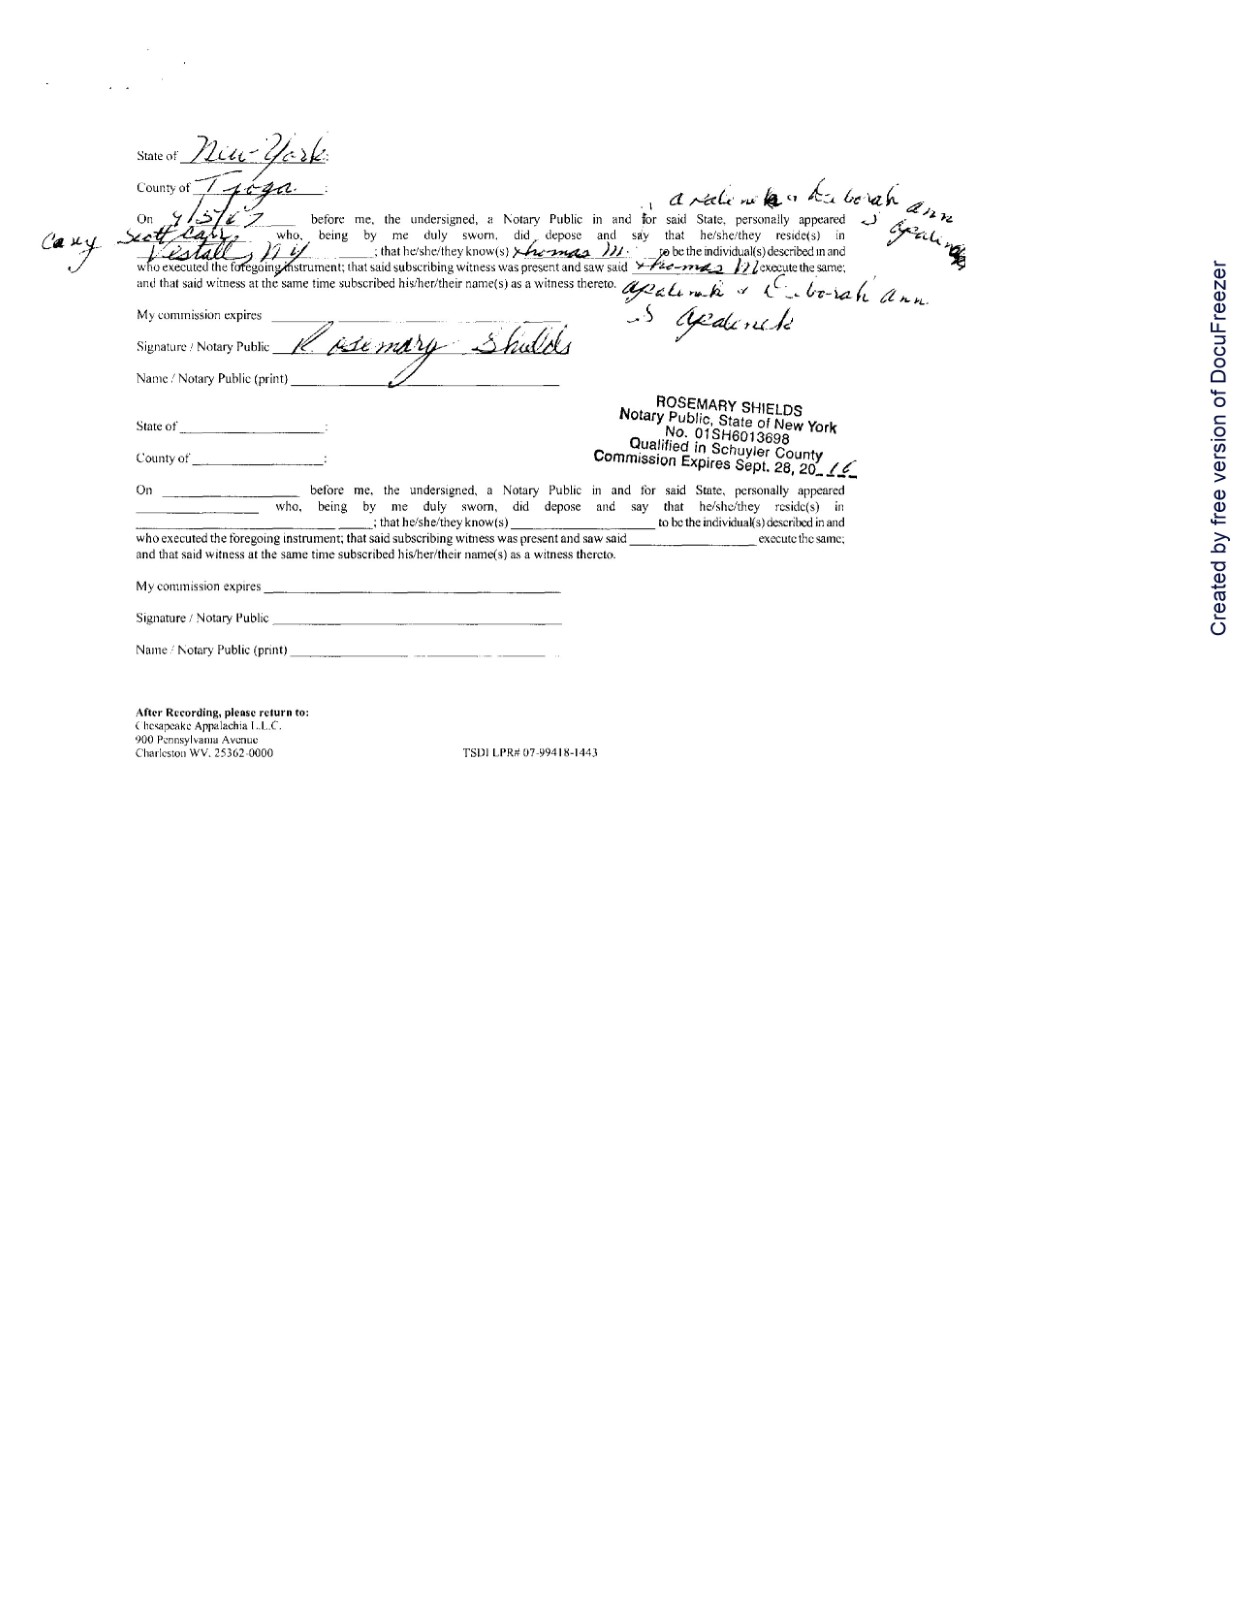 State of New York:
County of Tioga :
Deborah ann
On 4/5/07 before me, the undersigned, a Notary Public in and for said State, personally appeared
Casey Scott who, being by me duly sworn, did depose and say that he/she/they reside(s) in
Vestall, NY ; that he/she/they know(s) Thomas M. to be the individual(s) described in and
who executed the foregoing instrument; that said subscribing witness was present and saw said Thomas M execute the same;
and that said witness at the same time subscribed his/her/their name(s) as a witness thereto. Deborah ann
My commission expires
Signature / Notary Public Rosemary Shields
Name / Notary Public (print)
ROSEMARY SHIELDS
Notary Public, State of New York
No. 01SH6013698
Qualified in Schuyler County
Commission Expires Sept. 28, 20
State of :
County of :
On before me, the undersigned, a Notary Public in and for said State, personally appeared
who, being by me duly sworn, did depose and say that he/she/they reside(s) in
; that he/she/they know(s) to be the individual(s) described in and
who executed the foregoing instrument; that said subscribing witness was present and saw said execute the same;
and that said witness at the same time subscribed his/her/their name(s) as a witness thereto.
My commission expires
Signature / Notary Public
Name / Notary Public (print)
After Recording, please return to:
Chesapeake Appalachia L.L.C.
900 Pennsylvania Avenue
Charleston WV, 25362-0000
TSDI LPR# 07-99418-1443
Created by free version of DocuFreezer